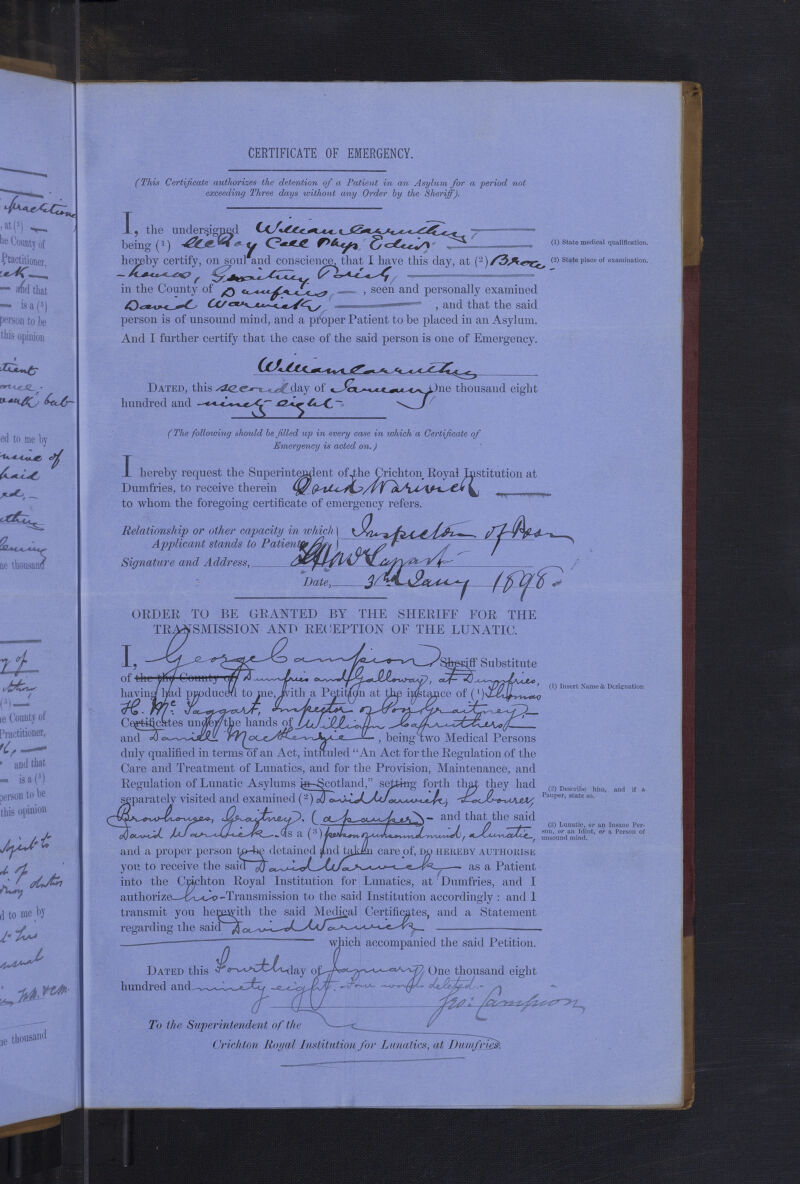 CERTIFICATE OF EMERGENCY.
(This Certificate authorizes the detention of a Patient in an Asylum for a period not
exceeding Three days without any Order by the Sheriff).
I, the undersigned William Carruthers,
being (1) Roy Coll Phys Edin
(1) State medical qualification.
hereby certify, on soul and conscience, that I have this day, at (2) Brow-
(2) State place of examination.
-houses, Graitney Parish,
in the County of Dumfries, seen and personally examined
David Warwick, and that the said
person is of unsound mind, and a proper Patient to be placed in an Asylum.
And I further certify that the case of the said person is one of Emergency.
William Carruthers
DATED, this second day of January One thousand eight
hundred and ninety eight.
(The following should be filled up in every case in which a Certificate of
Emergency is acted on.)
I hereby request the Superintendent of the Crichton Royal Institution at
Dumfries, to receive therein David Warwick
to whom the foregoing certificate of emergency refers.
Relationship or other capacity in which Inspector of Poor
Applicant stands to Patient,
Signature and Address,
Date, 3rd Jany 1898.
ORDER TO BE GRANTED BY THE SHERIFF FOR THE
TRANSMISSION AND RECEPTION OF THE LUNATIC.
I, George Campion Sheriff Substitute
of the the County of Dumfries and Galloway, at Dumfries,
having had produced to me, with a Petition at the instance of (1) Thomas
(1) Insert Name & Designation
H. McTaggart, Inspector of Poor Graitney,
Certificates under the hands of William Carruthers
and Daniel MacKenzie, being two Medical Persons
duly qualified in terms of an Act, intituled "An Act for the Regulation of the
Care and Treatment of Lunatics, and for the Provision, Maintenance, and
Regulation of Lunatic Asylums in Scotland," setting forth that they had
separately visited and examined (2) David Warwick, Labourer,
(2) Describe him, and if a
Pauper, state so.
Browhouses, Graitney, (a pauper) - and that the said
David Warwick. is a (3) person of unsound mind, a lunatic,
(3) Lunatic, or an Insane Per-
son, or an Idiot, or a Person of
unsound mind.
and a proper person to be detained and taken care of, DO HEREBY AUTHORISE
you to receive the said David Warwick as a Patient
into the Crichton Royal Institution for Lunatics, at Dumfries, and I
authorize his Transmission to the said Institution accordingly : and I
transmit you herewith the said Medical Certificates, and a Statement
regarding the said David Warwick
which accompanied the said Petition.
DATED this Fourth day of January, One thousand eight
hundred and ninety eight. Four words deleted.
Geo: Campion
To the Superintendent of the
Crichton Royal Institution for Lunatics, at Dumfries.